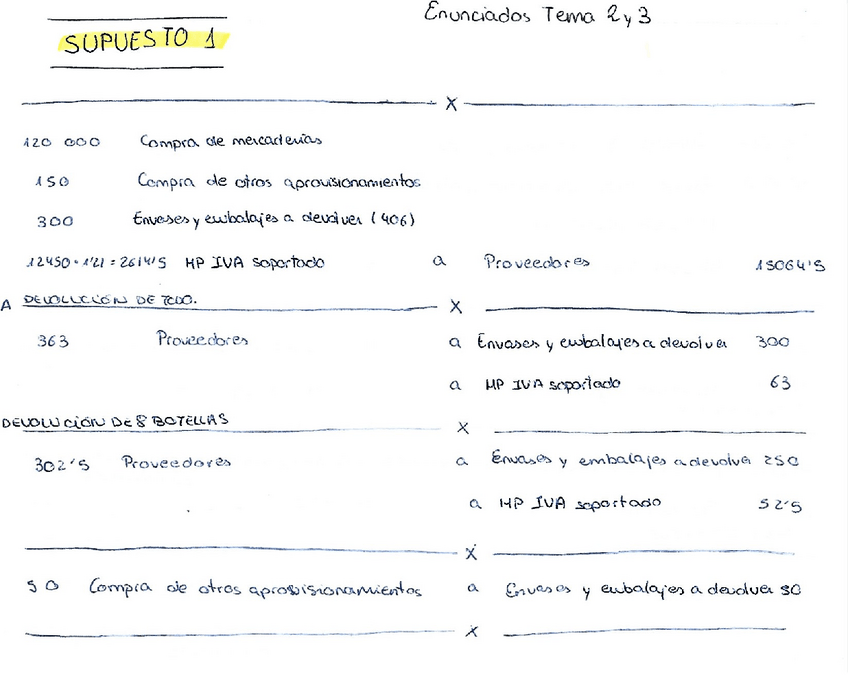 Enunciados Tema 2 y 3
SUPUESTO 1
X
120 000 Compra de mercaderias
150 Compra de otros aprovisionamientos
300 Envases y embalajes a devolver (406)
12450 · 1'21 = 2614'5 HP IVA soportado a Proveedores 15064'5
A DEVOLUCIÓN DE TODO. X
363 Proveedores a Envases y embalajes a devolver 300
a HP IVA soportado 63
DEVOLUCIÓN DE 8 BOTELLAS X
302'5 Proveedores a Envases y embalajes a devolver 250
a HP IVA soportado 52'5
X
50 Compra de otros aprovisionamientos a Envases y embalajes a devolver 50
X